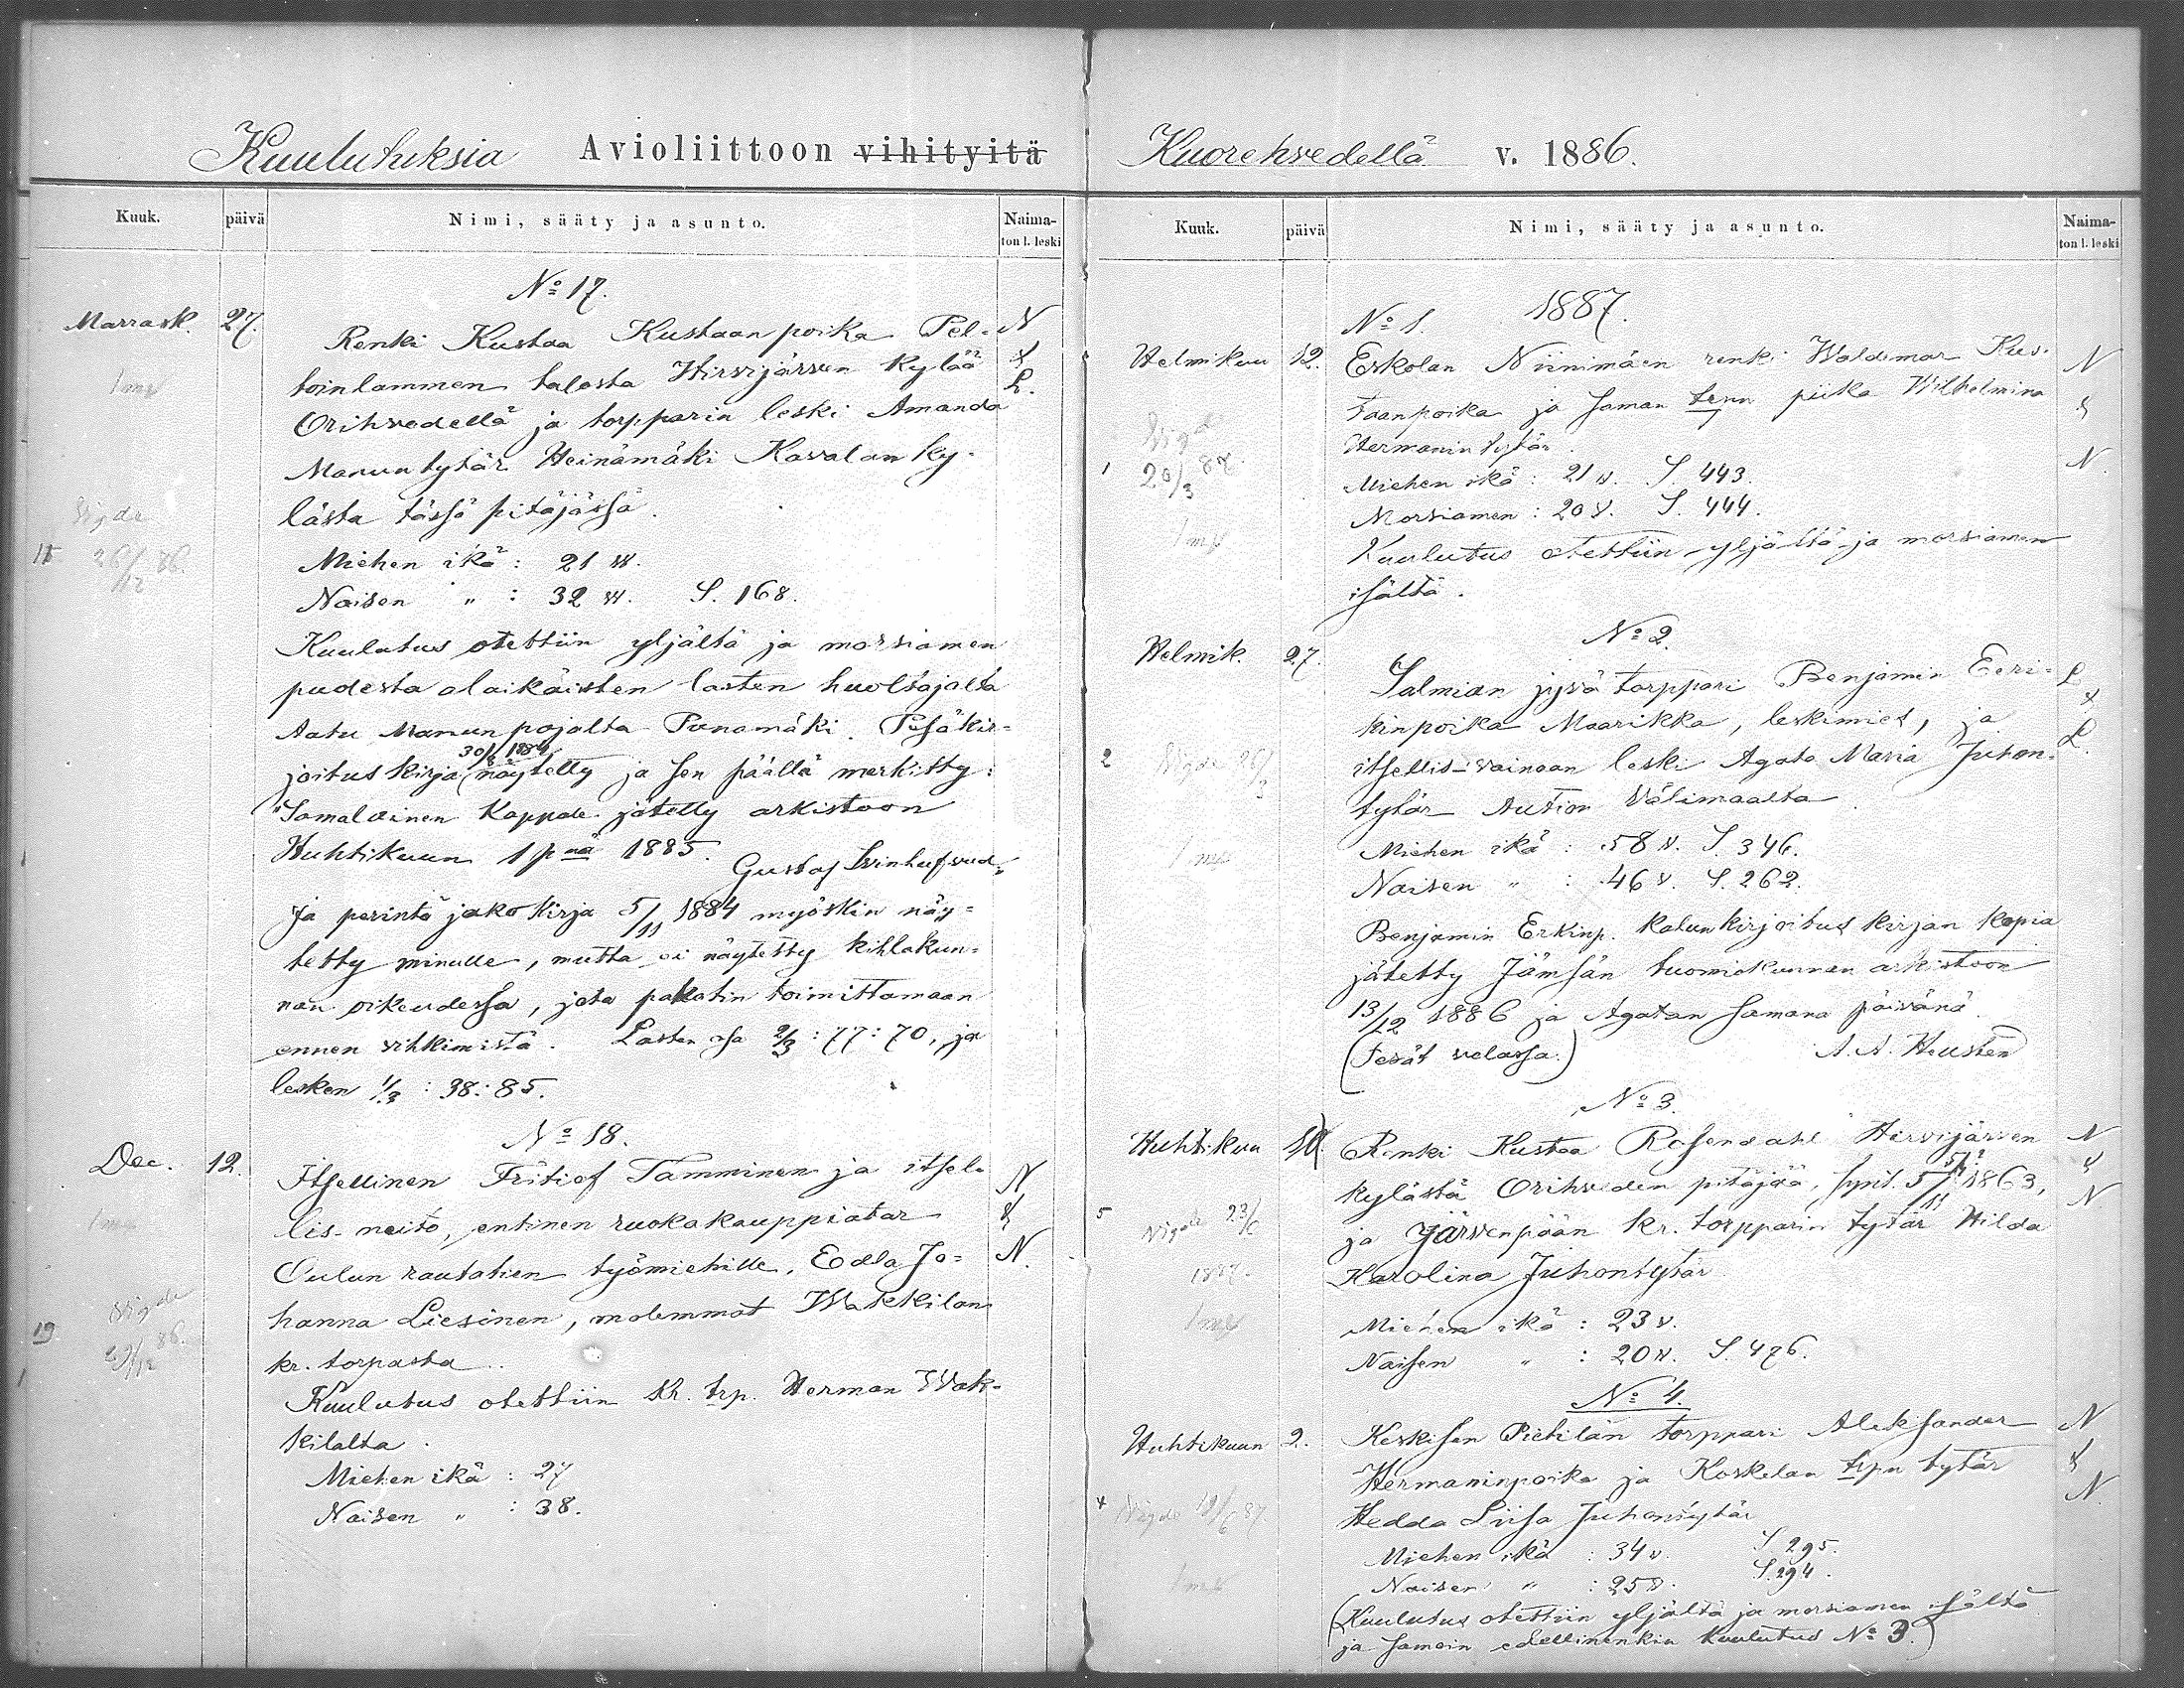 Kuulutuksia Avioliittoon vihityitä
Kuuk. päivä Nimi, sääty ja asunto. Naima-
ton l. leski
No 17.
Marrask. 27. Renki Kustaa Kustaanpoika Pel- N
toinlammen talosta Hirvijärven kylää &
1 mk Orihvedellä ja torpparin leski Amanda L.
Manuntytär Heinämäki Kavalan ky-
lästä tässä pitäjässä.
Vigde
26/12 86.
Miehen ikä: 21 v.
Naisen " : 32 v. S. 168.
Kuulutus otettiin yljältä ja morsiamen
puolesta alaikäisten lasten huoltajalta
Aatu Manunpojalta Punamäki. Pesäkir-
joituskirja näytetty ja sen päällä merkitty:
"Samallainen kappale jätetty arkistoon
Huhtikuun 1 pnä 1885. Gustaf Svinhufvud"
Ja perintö jakokirja 5/11 1884 myöskin näy-
tetty minulle, mutta ei näytetty kihlakun-
nan oikeudessa, jota pakotin toimittamaan
ennen vihkimistä. Lasten osa 2/3 : 77: 70, ja
lesken 1/3 : 38: 85.
No 18.
Dec. 12. Itsellinen Fritiof Tamminen ja itsel- N
1 mk lis- neito, entinen ruokakauppiatar &
Oulun rautatien työmiehille, Edla Jo- N.
hanna Liesinen, molemmat Wakkilan
19 Vigde 86.
kr. torpasta.
Kuulutus otettiin kr. trp. Herman Wak-
kilalta.
Miehen ikä : 27
Naisen " : 38.
Kuorehvedellä v. 1886.
Kuuk. päivä Nimi, sääty ja asunto. Naima-
ton l. leski
No 1. 1887.
Helmikuu 12. Eskolan Niinimäen renki Waldemar Kus- N
taanpoika ja saman trpn piika Wilhelmina &
Hermanintytär. N.
1 Vigd 20/3 87.
Miehen ikä: 21 v. S. 443.
Morsiamen: 20 v. S. 444.
1 mk
Kuulutus otettiin yljältä ja morsiamen
isältä.
No 2.
Helmik. 27. Salmian jyvä torppari Benjamin Eeri- L
kinpoika Maarikka, leskimies, ja &
2 Vigde 26/3 itsellis- vainaan leski Agata Maria Juhon- L.
tytär Aution Välimaalta.
1 mk
Miehen ikä : 58 v. S. 346.
Naisen " : 46 v. S. 262.
Benjamin Erkinp. kalunkirjoitus kirjan kopia
jätetty Jämsän tuomiokunnan arkistoon
13/12 1886 ja Agatan samana päivänä.
(Pesät velassa.)
No 3.
Huhtikuu Renki Kustaa Rosendahl Hirvijärven N
kylästä Orihveden pitäjää, synt. 5/11 1863, &
5 Vigde 23/6 ja Järvenpään kr. torpparin tytär Hilda N
1887. Karolina Juhontytär
1 mk
Miehen ikä : 23 v.
Naisen " : 20 v. S. 476.
No 4.
Huhtikuun 2. Keskisen Pietilän torppari Aleksander N
Hermaninpoika ja Koskelan trpn tytär &
4 Vigde 19/6 87. Hedda Liisa Juhontytär N.
Miehen ikä : 34 v. S 295.
1 mk Naisen " : 25 v. S. 294.
(Kuulutus otettiin yljältä ja morsiamen isältä
ja samoin edellinenkin kuulutus No 3.)